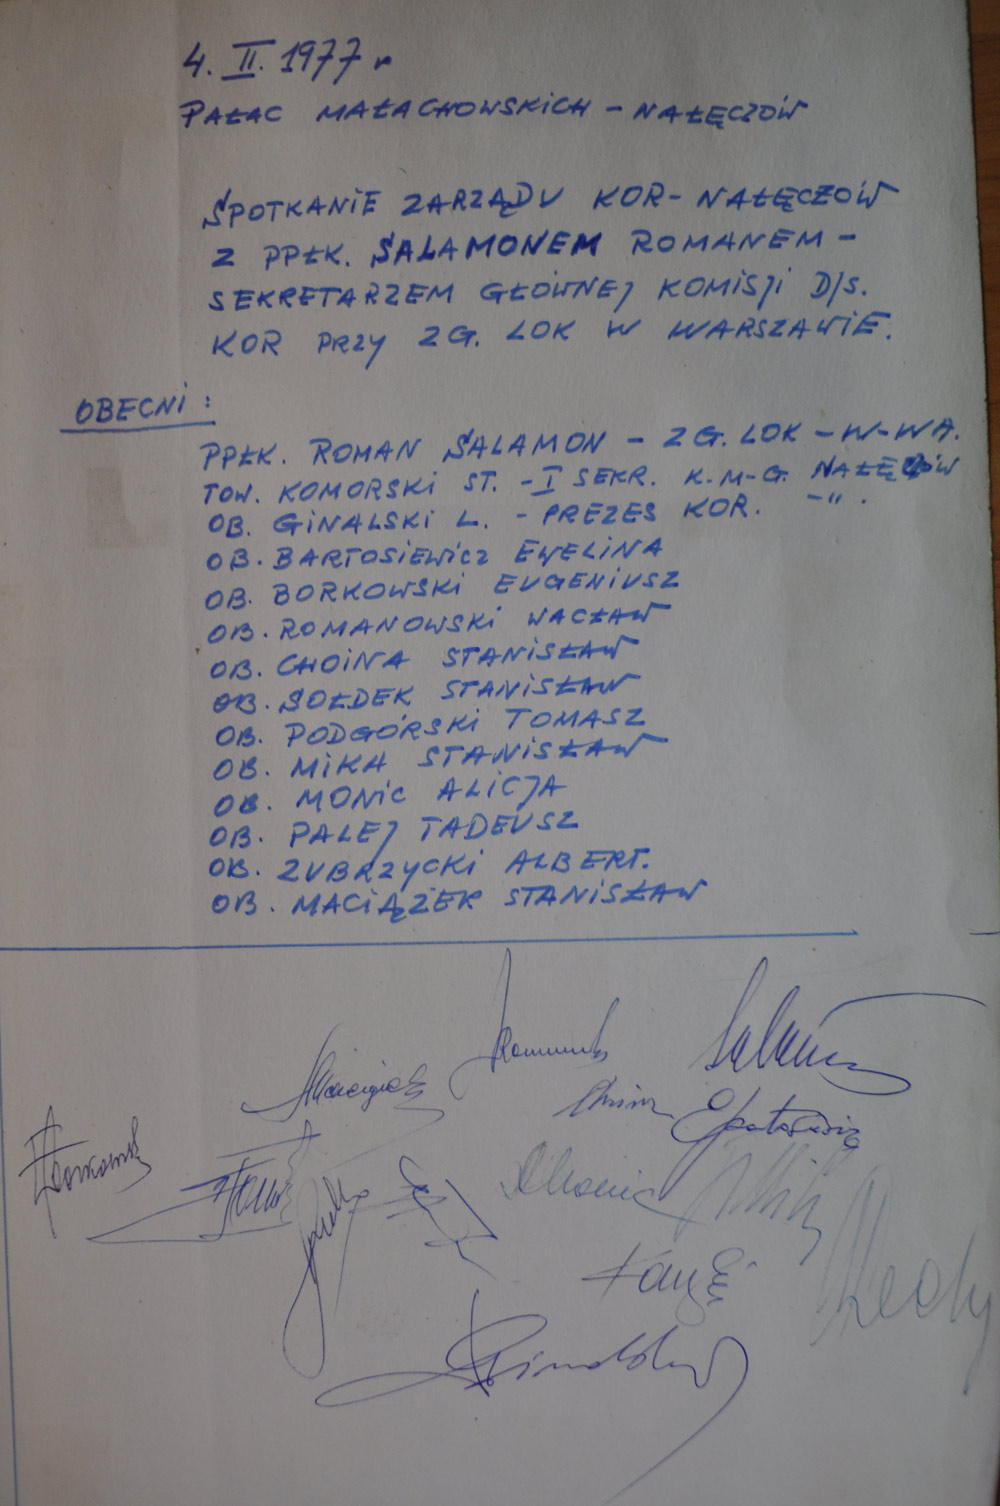 4. II. 1977 r
PAŁAC MAŁACHOWSKICH – NAŁĘCZÓW
SPOTKANIE ZARZĄDU KOR – NAŁĘCZÓW
Z PPŁK. SALAMONEM ROMANEM –
SEKRETARZEM GŁÓWNEJ KOMISJI D/S.
KOR PRZY ZG. LOK W WARSZAWIE.
OBECNI :
PPŁK. ROMAN SALAMON – ZG. LOK – W-WA.
TOW. KOMORSKI ST. – I SEKR. K.M-G. NAŁĘCZÓW
OB. GINALSKI L. – PREZES KOR. –"–.
OB. BARTOSIEWICZ EWELINA
OB. BORKOWSKI EUGENIUSZ
OB. ROMANOWSKI WACŁAW
OB. CHOINA STANISŁAW
OB. SOŁDEK STANISŁAW
OB. PODGÓRSKI TOMASZ
OB. MIKA STANISŁAW
OB. MONIC ALICJA
OB. PALEJ TADEUSZ
OB. ZUBRZYCKI ALBERT.
OB. MACIĄŻEK STANISŁAW